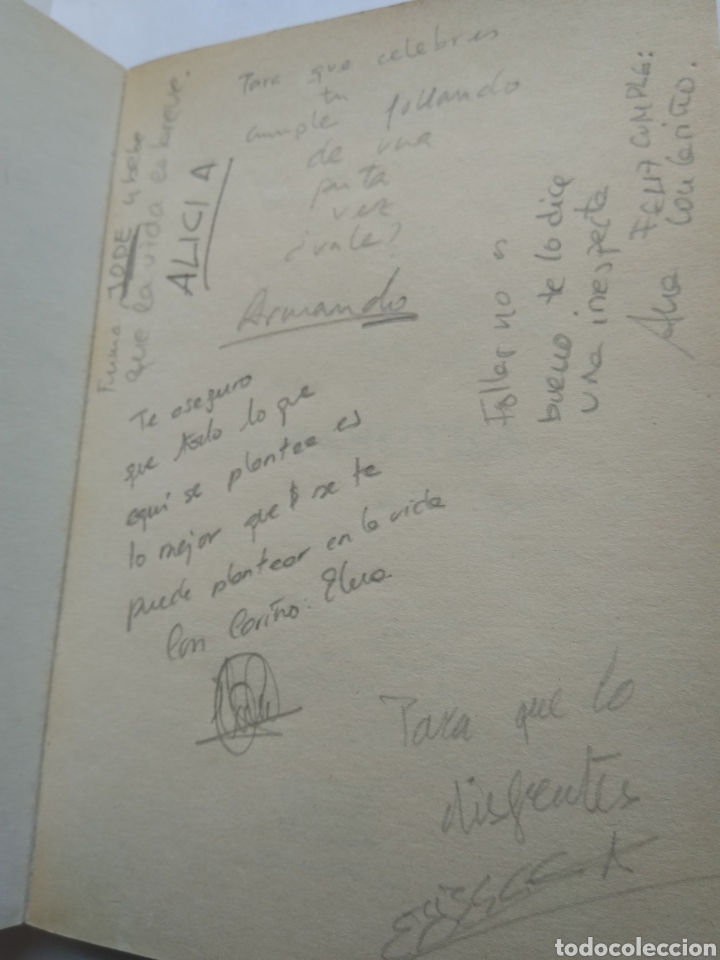 Fuma, JODE y bebe
que la vida es breve.
ALICIA
Para que celebres
tu
cumple follando
de una
puta
vez
¿vale?
Armando
Follar no es
bueno te lo dice
una inexperta
FELIZ CUMPLE:
Ana con cariño.
Te aseguro
que todo lo que
aquí se plantea es
lo mejor que se te
puede plantear en la vida
Con Cariño: Elena
Para que lo
disfrutes
todocoleccion